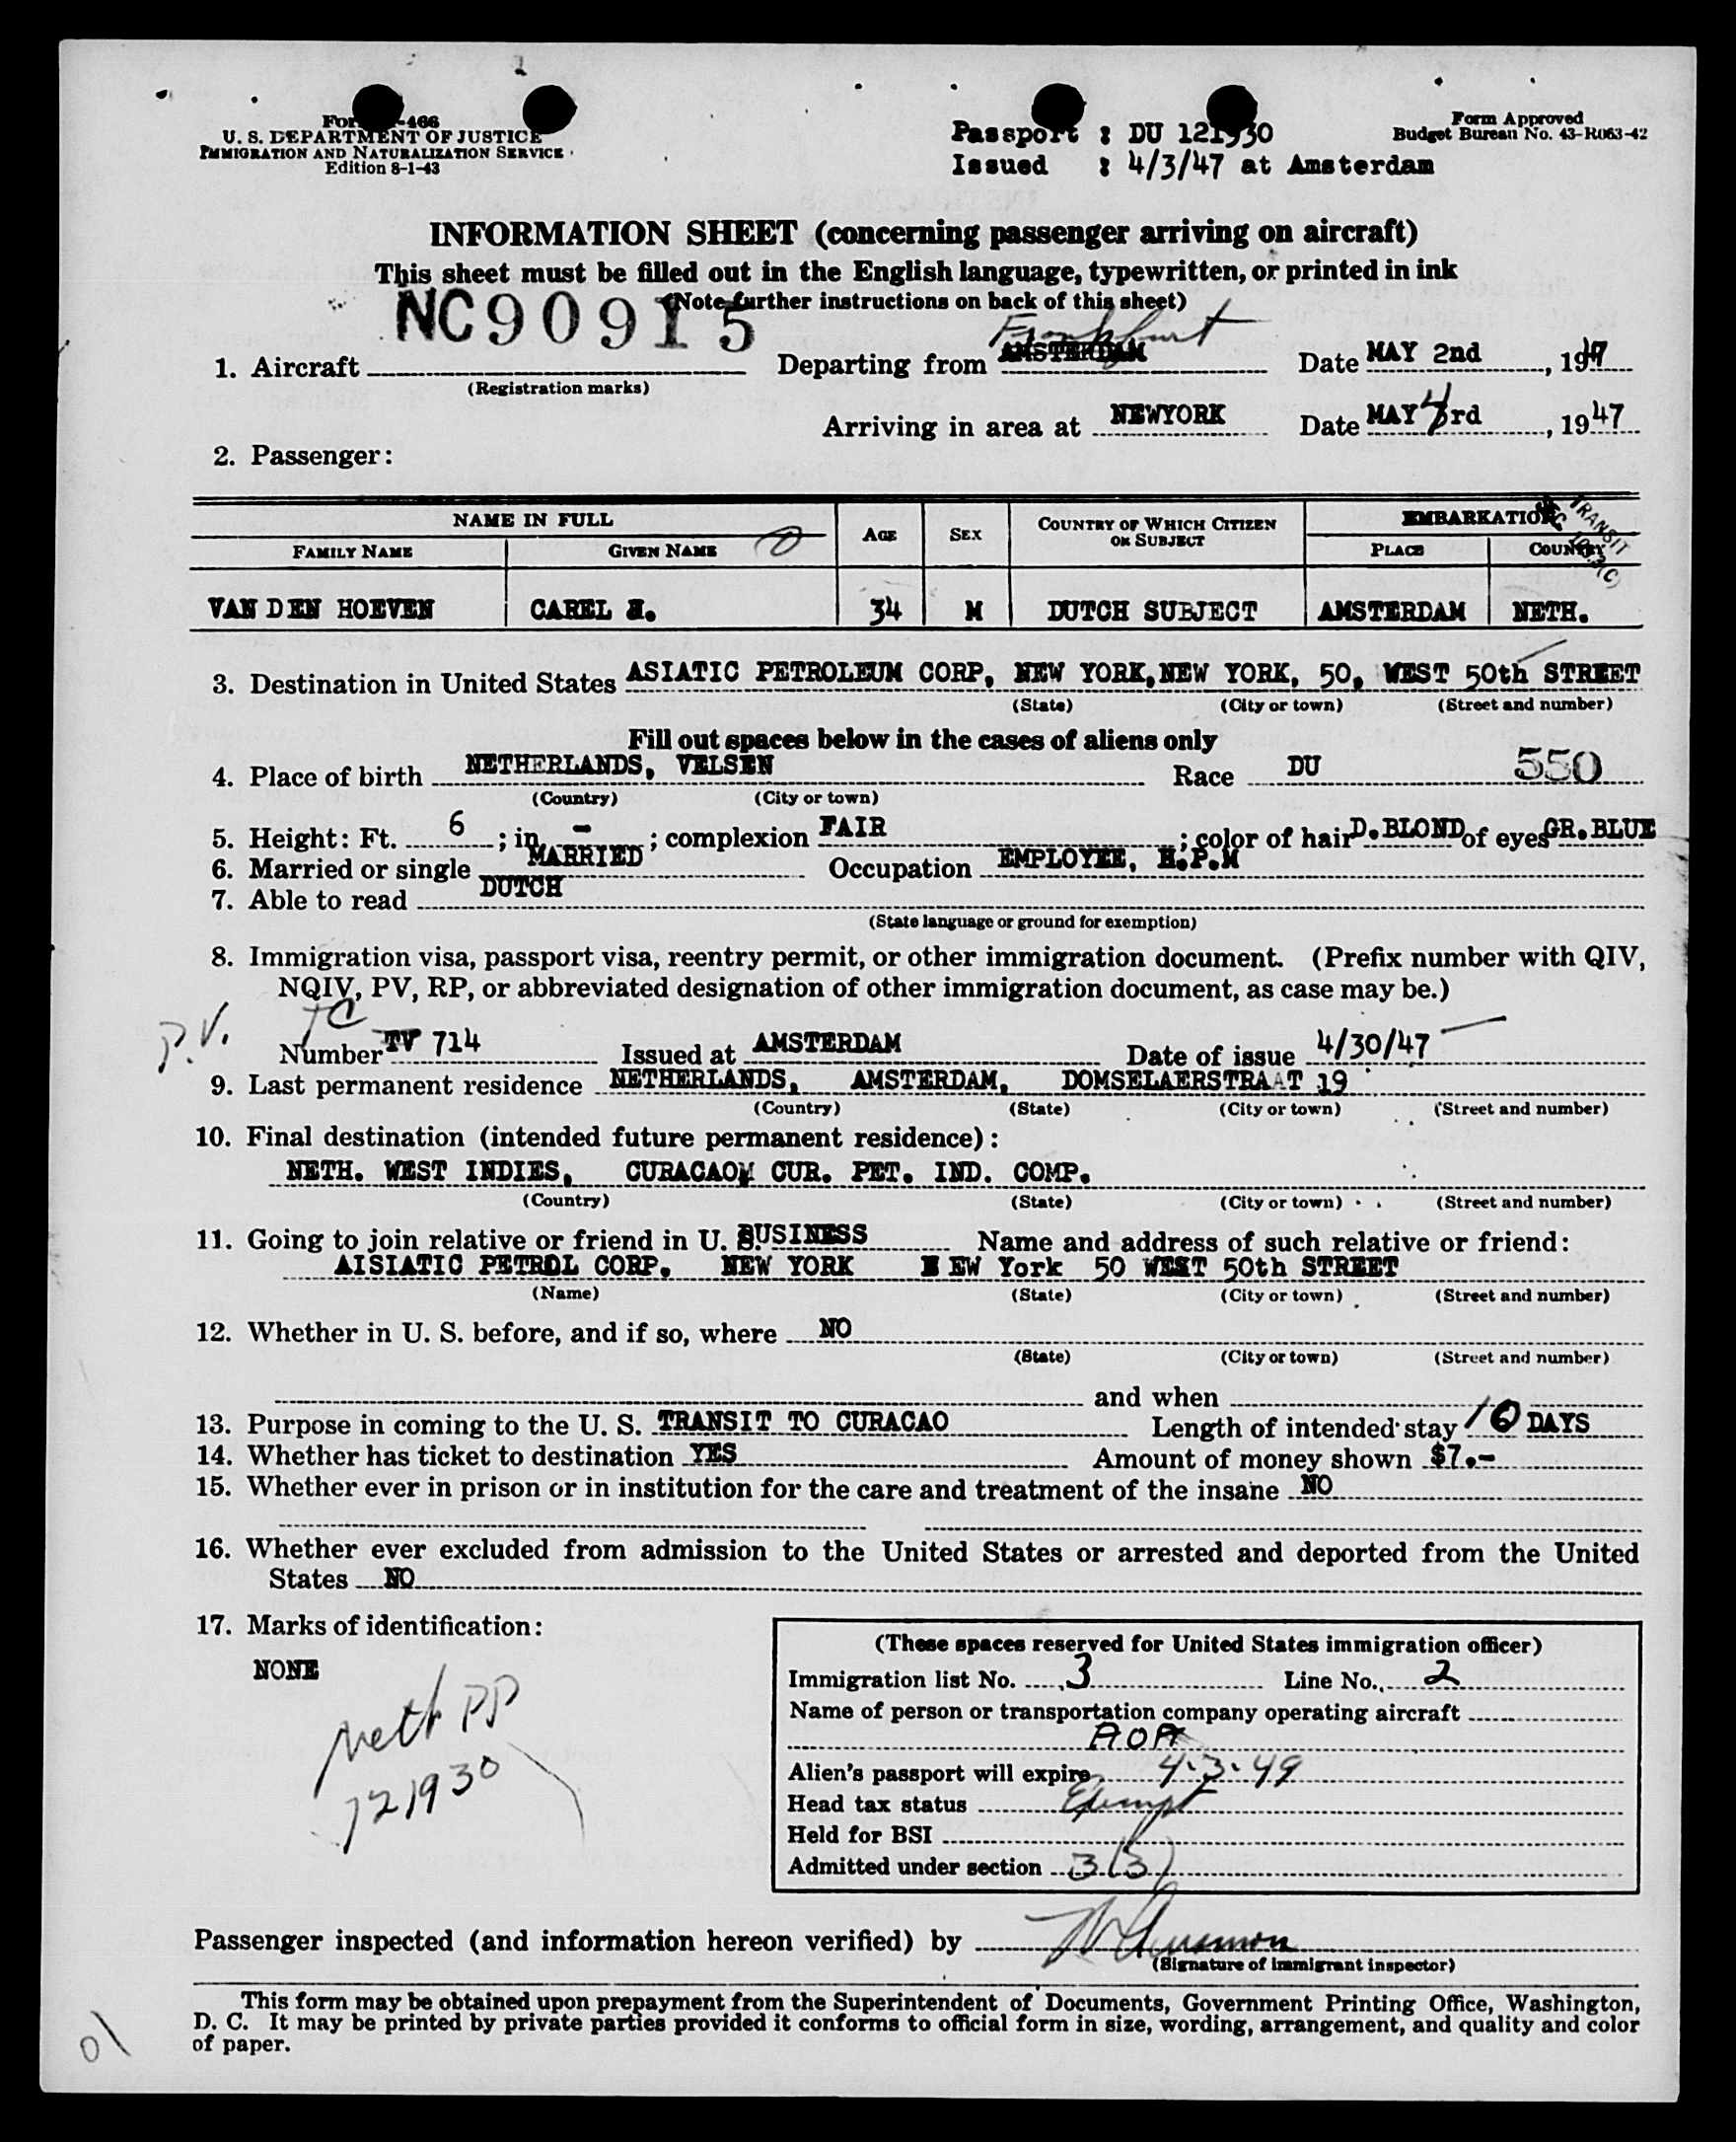 Passport : DU 121930
Form Approved
Budget Bureau No. 43-R063-42
U. S. DEPARTMENT OF JUSTICE
IMMIGRATION AND NATURALIZATION SERVICE
Edition 8-1-43
Issued : 4/3/47 at Amsterdam
INFORMATION SHEET (concerning passenger arriving on aircraft)
This sheet must be filled out in the English language, typewritten, or printed in ink
(Note further instructions on back of this sheet)
NC90915
Frankfurt
1. Aircraft Departing from AMSTERDAM Date MAY 2nd, 1947
(Registration marks)
Arriving in area at NEWYORK Date MAY 4 3rd, 1947
2. Passenger:
NAME IN FULL AGE SEX COUNTRY OF WHICH CITIZEN OR SUBJECT EMBARKATION
TRANSIT
SEC. 103.3(C)
FAMILY NAME GIVEN NAME PLACE COUNTRY
VAN DEN HOEVEN CAREL H. 34 M DUTCH SUBJECT AMSTERDAM NETH.
3. Destination in United States ASIATIC PETROLEUM CORP, NEW YORK, NEW YORK, 50, WEST 50th STREET
(State) (City or town) (Street and number)
Fill out spaces below in the cases of aliens only
4. Place of birth NETHERLANDS, VELSEN Race DU 550
(Country) (City or town)
5. Height: Ft. 6 ; in. - ; complexion FAIR ; color of hair D.BLOND of eyes GR.BLUE
6. Married or single MARRIED Occupation EMPLOYEE, H.P.M
7. Able to read DUTCH
(State language or ground for exemption)
8. Immigration visa, passport visa, reentry permit, or other immigration document. (Prefix number with QIV,
NQIV, PV, RP, or abbreviated designation of other immigration document, as case may be.)
P.V. TC
Number TV 714 Issued at AMSTERDAM Date of issue 4/30/47
9. Last permanent residence NETHERLANDS, AMSTERDAM, DOMSELAERSTRAAT 19
(Country) (State) (City or town) (Street and number)
10. Final destination (intended future permanent residence):
NETH. WEST INDIES, CURACAO, CUR. PET. IND. COMP.
(Country) (State) (City or town) (Street and number)
11. Going to join relative or friend in U. S. BUSINESS Name and address of such relative or friend:
AISIATIC PETROL CORP. NEW YORK N EW York 50 WEST 50th STREET
(Name) (State) (City or town) (Street and number)
12. Whether in U. S. before, and if so, where NO
(State) (City or town) (Street and number)
and when
13. Purpose in coming to the U. S. TRANSIT TO CURACAO Length of intended stay 10 DAYS
14. Whether has ticket to destination YES Amount of money shown $7.-
15. Whether ever in prison or in institution for the care and treatment of the insane NO
16. Whether ever excluded from admission to the United States or arrested and deported from the United
States NO
17. Marks of identification:
NONE
Neth PP
121930
(These spaces reserved for United States immigration officer)
Immigration list No. 3 Line No. 2
Name of person or transportation company operating aircraft
AOA
Alien's passport will expire 4-3-49
Head tax status Exempt
Held for BSI
Admitted under section 3(3)
Passenger inspected (and information hereon verified) by
(Signature of immigrant inspector)
This form may be obtained upon prepayment from the Superintendent of Documents, Government Printing Office, Washington,
D. C. It may be printed by private parties provided it conforms to official form in size, wording, arrangement, and quality and color
of paper.